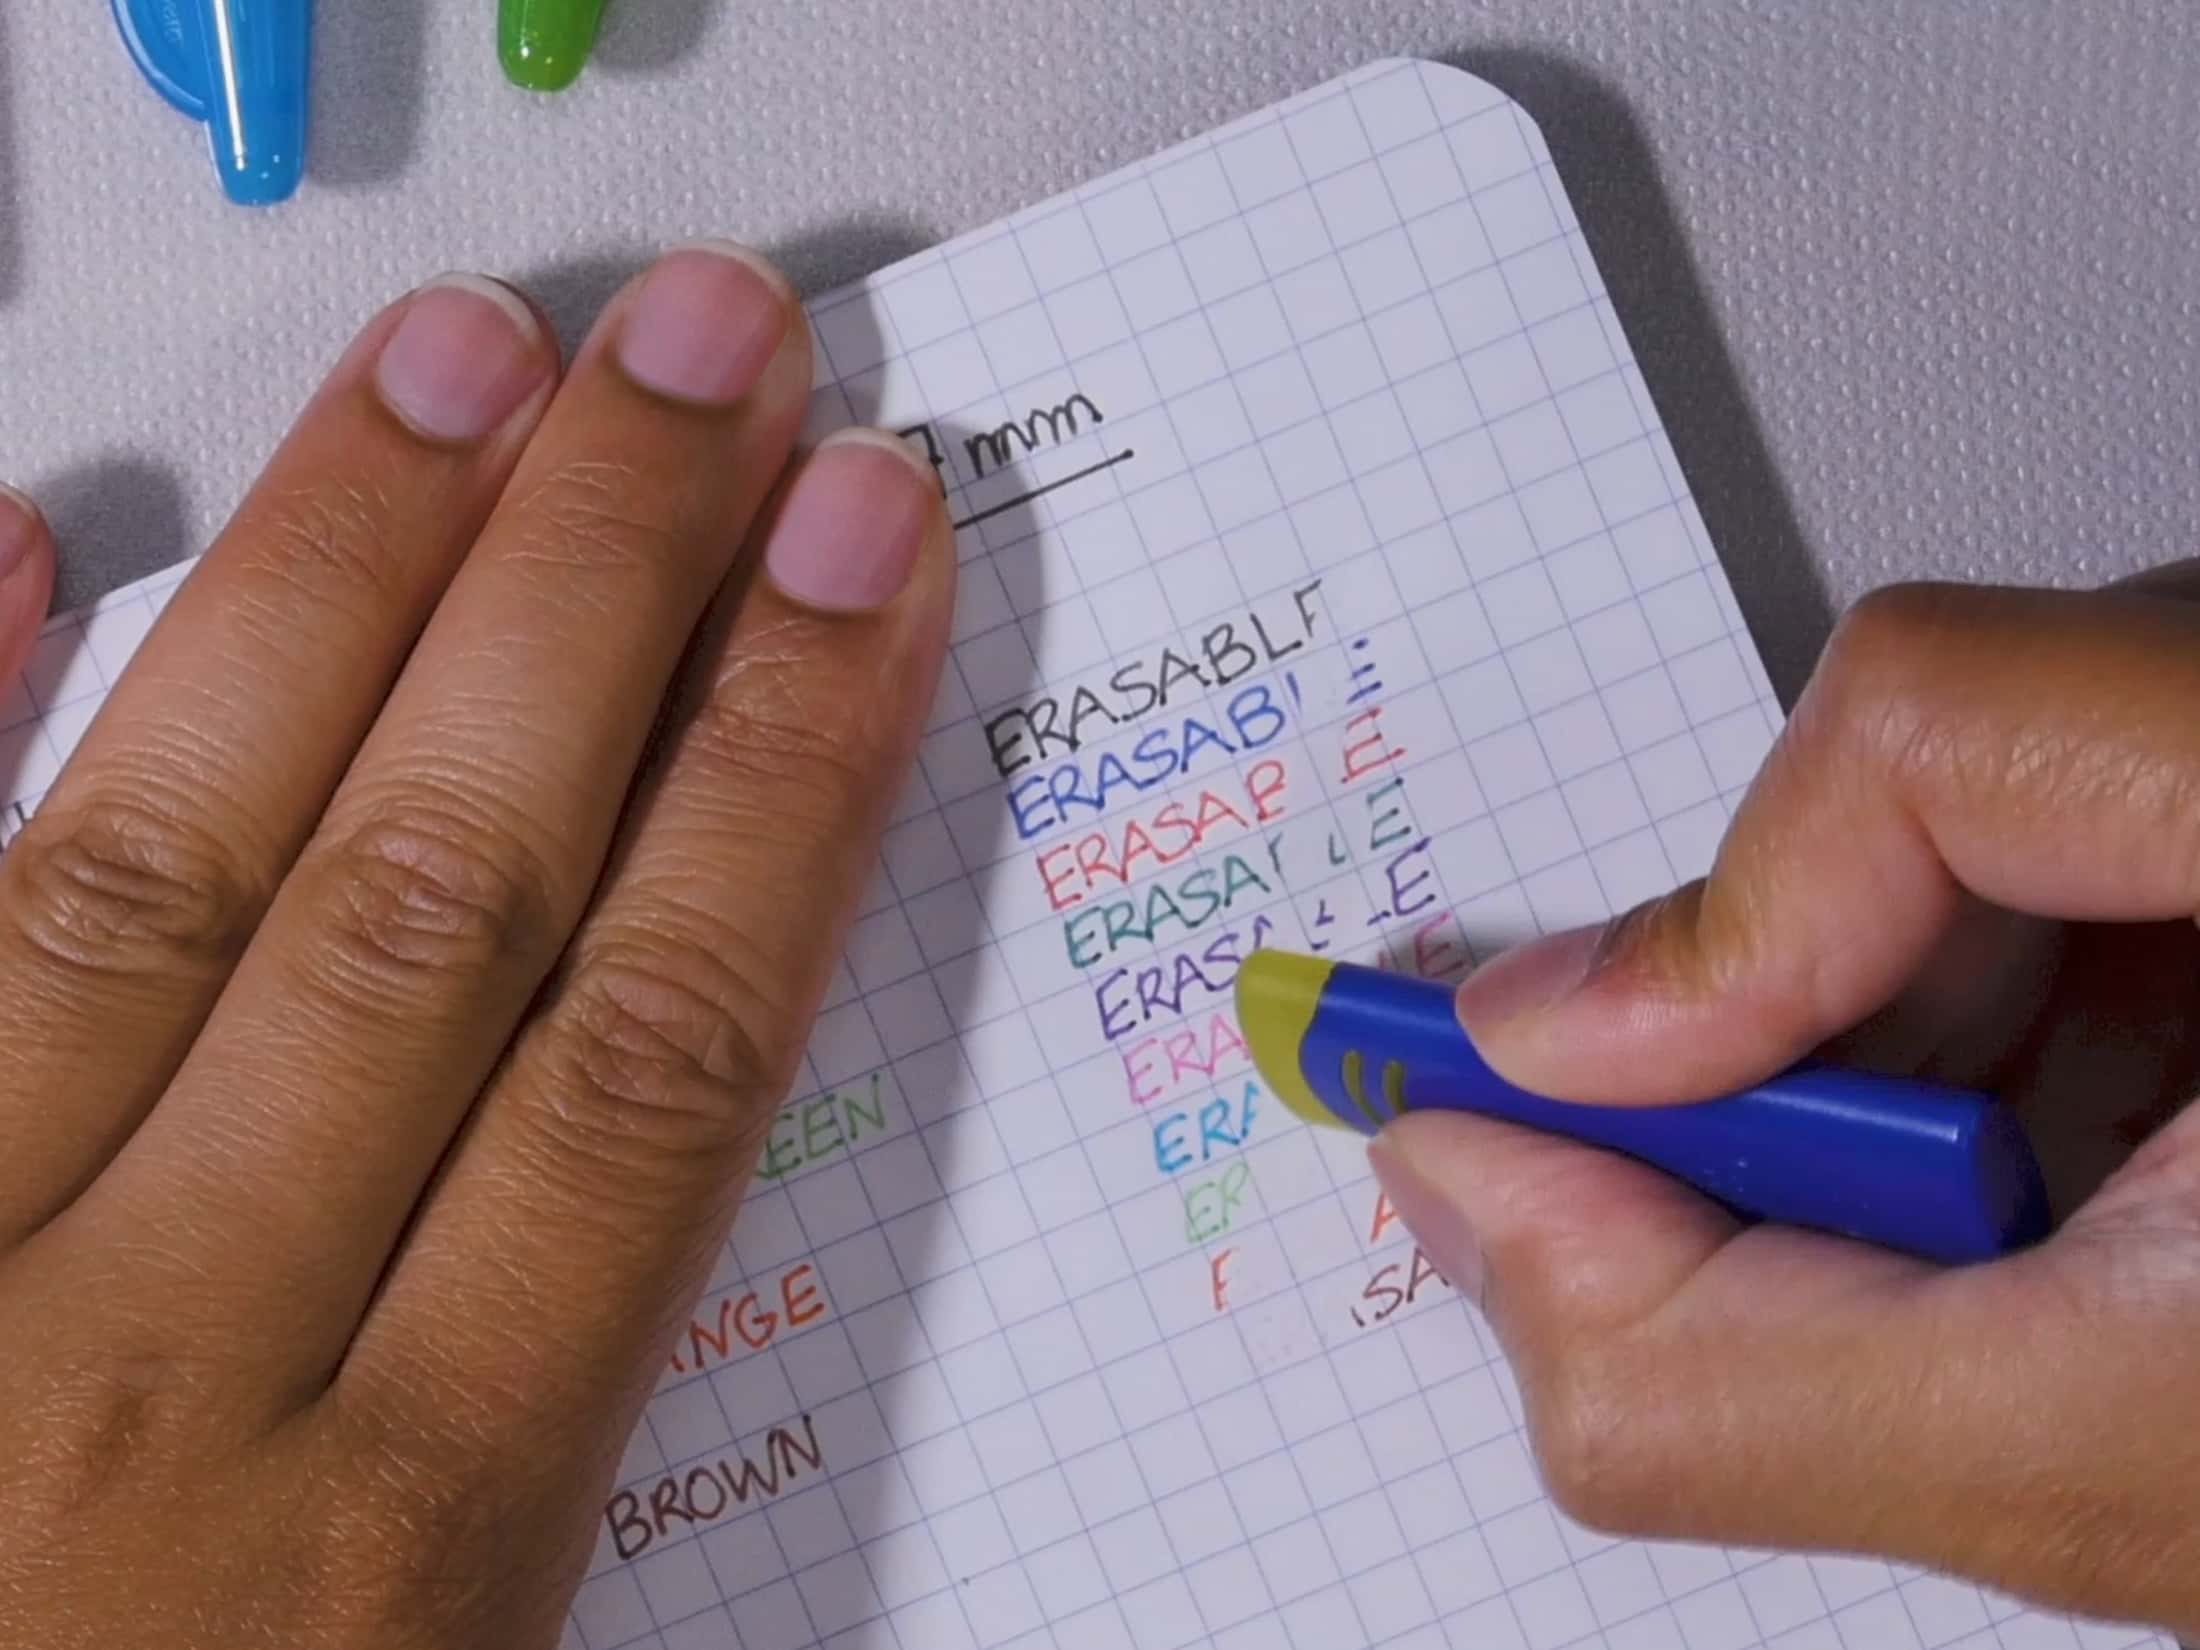 7 mm
ERASABLE
ERASAB E
ERASAB E
ERASA LE
ERAS LE
ERA LE
ERA
ER
EEN
E A
NGE
SA
BROWN